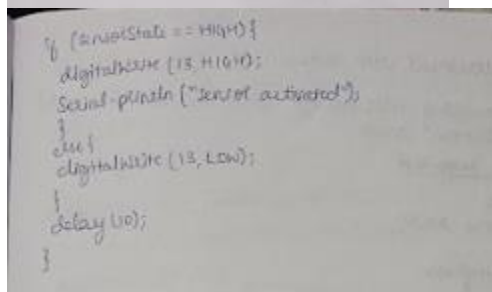 if (sensorState == HIGH) {
digitalWrite (13, HIGH);
Serial.println ("Sensor activated");
}
else {
digitalWrite (13, LOW);
}
delay (10);
}